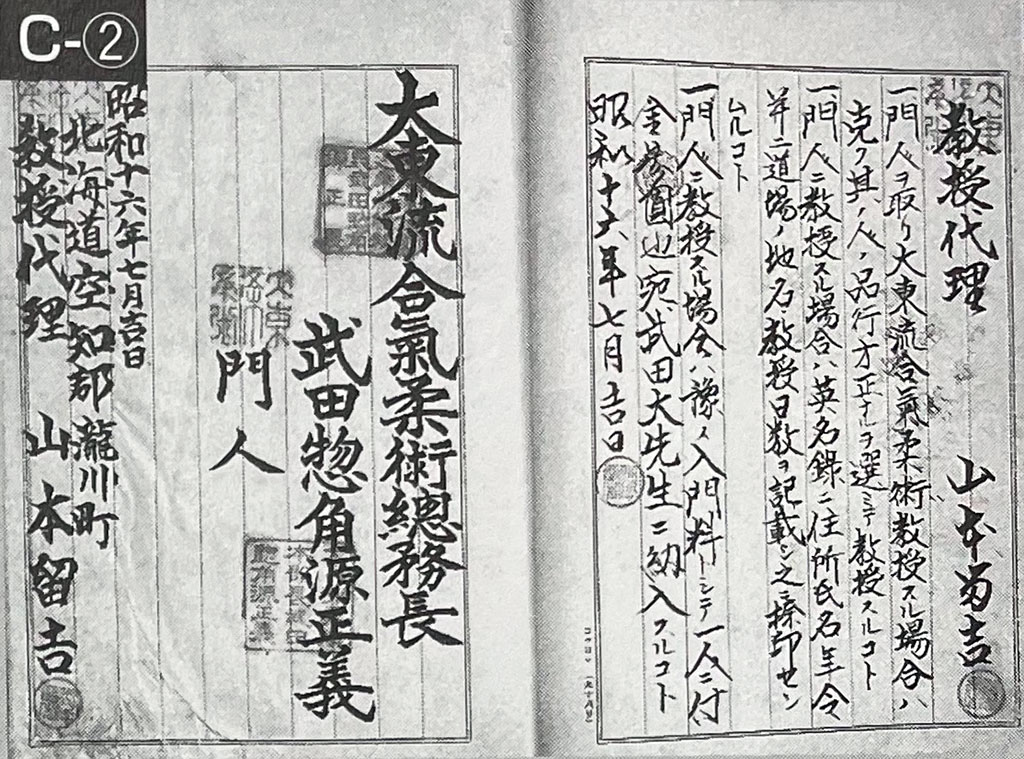 C-②
教授代理 山本留吉
一門人ヲ取リ大東流合氣柔術教授スル場合ハ
克ク其ノ人ノ品行方正ナルヲ選ミテ教授スルコト
一門人ニ教授スル場合ハ英名録ニ住所氏名年令
并ニ道場ノ地名教授日数ヲ記載シ之ニ捺印セシ
ムルコト
一門人ニ教授スル場合ハ豫メ入門料トシテ一人ニ付
金参圓也宛武田大先生ニ納入スルコト
昭和十六年七月吉日
大東流合氣柔術總務長
武田惣角源正義
門人
昭和十六年七月吉日
北海道空知郡瀧川町
教授代理 山本留吉